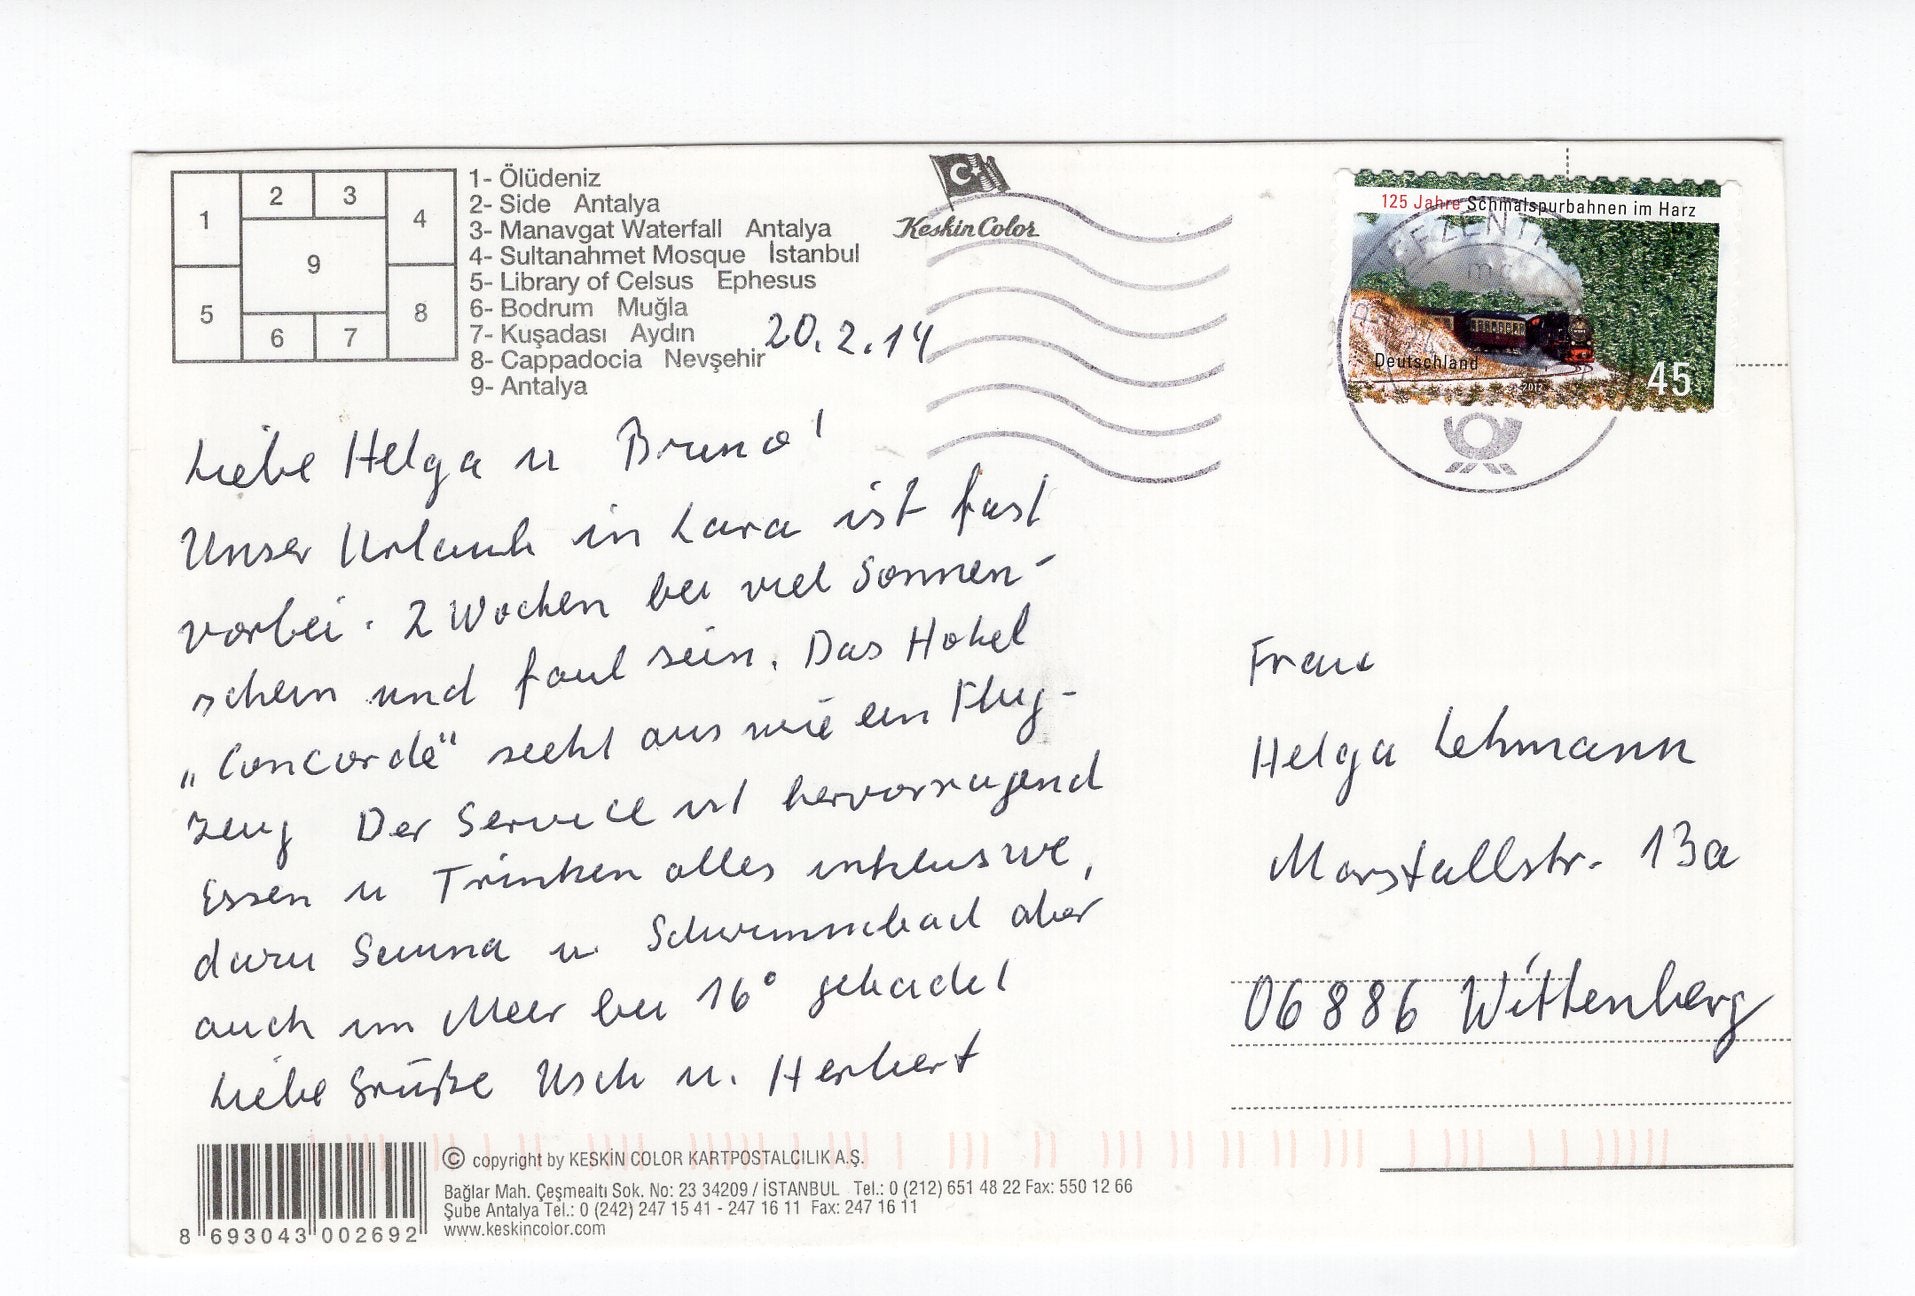 1 2 3 4 5 6 7 8 9
1- Ölüdeniz
2- Side Antalya
3- Manavgat Waterfall Antalya
4- Sultanahmet Mosque İstanbul
5- Library of Celsus Ephesus
6- Bodrum Muğla
7- Kuşadası Aydın
8- Cappadocia Nevşehir
9- Antalya
Keskin Color
125 Jahre Schmalspurbahnen im Harz
Deutschland
2012
45
20.2.14
Liebe Helga u Bruno!
Unser Urlaub in Lara ist fast
vorbei. 2 Wochen bei viel Sonnen-
schein und faul sein. Das Hotel
„Concorde" sieht aus wie ein Flug-
zeug Der Service ist hervorragend
Essen u Trinken alles inklusive,
dazu Sauna u. Schwimmbad aber
auch im Meer bei 16° gebadet
Liebe Grüße Usch u. Herbert
Frau
Helga Lehmann
Marstallstr. 13a
06886 Wittenberg
8 693043 002692
© copyright by KESKİN COLOR KARTPOSTALCILIK A.Ş.
Bağlar Mah. Çeşmealtı Sok. No: 23 34209 / İSTANBUL Tel.: 0 (212) 651 48 22 Fax: 550 12 66
Şube Antalya Tel.: 0 (242) 247 15 41 - 247 16 11 Fax: 247 16 11
www.keskincolor.com